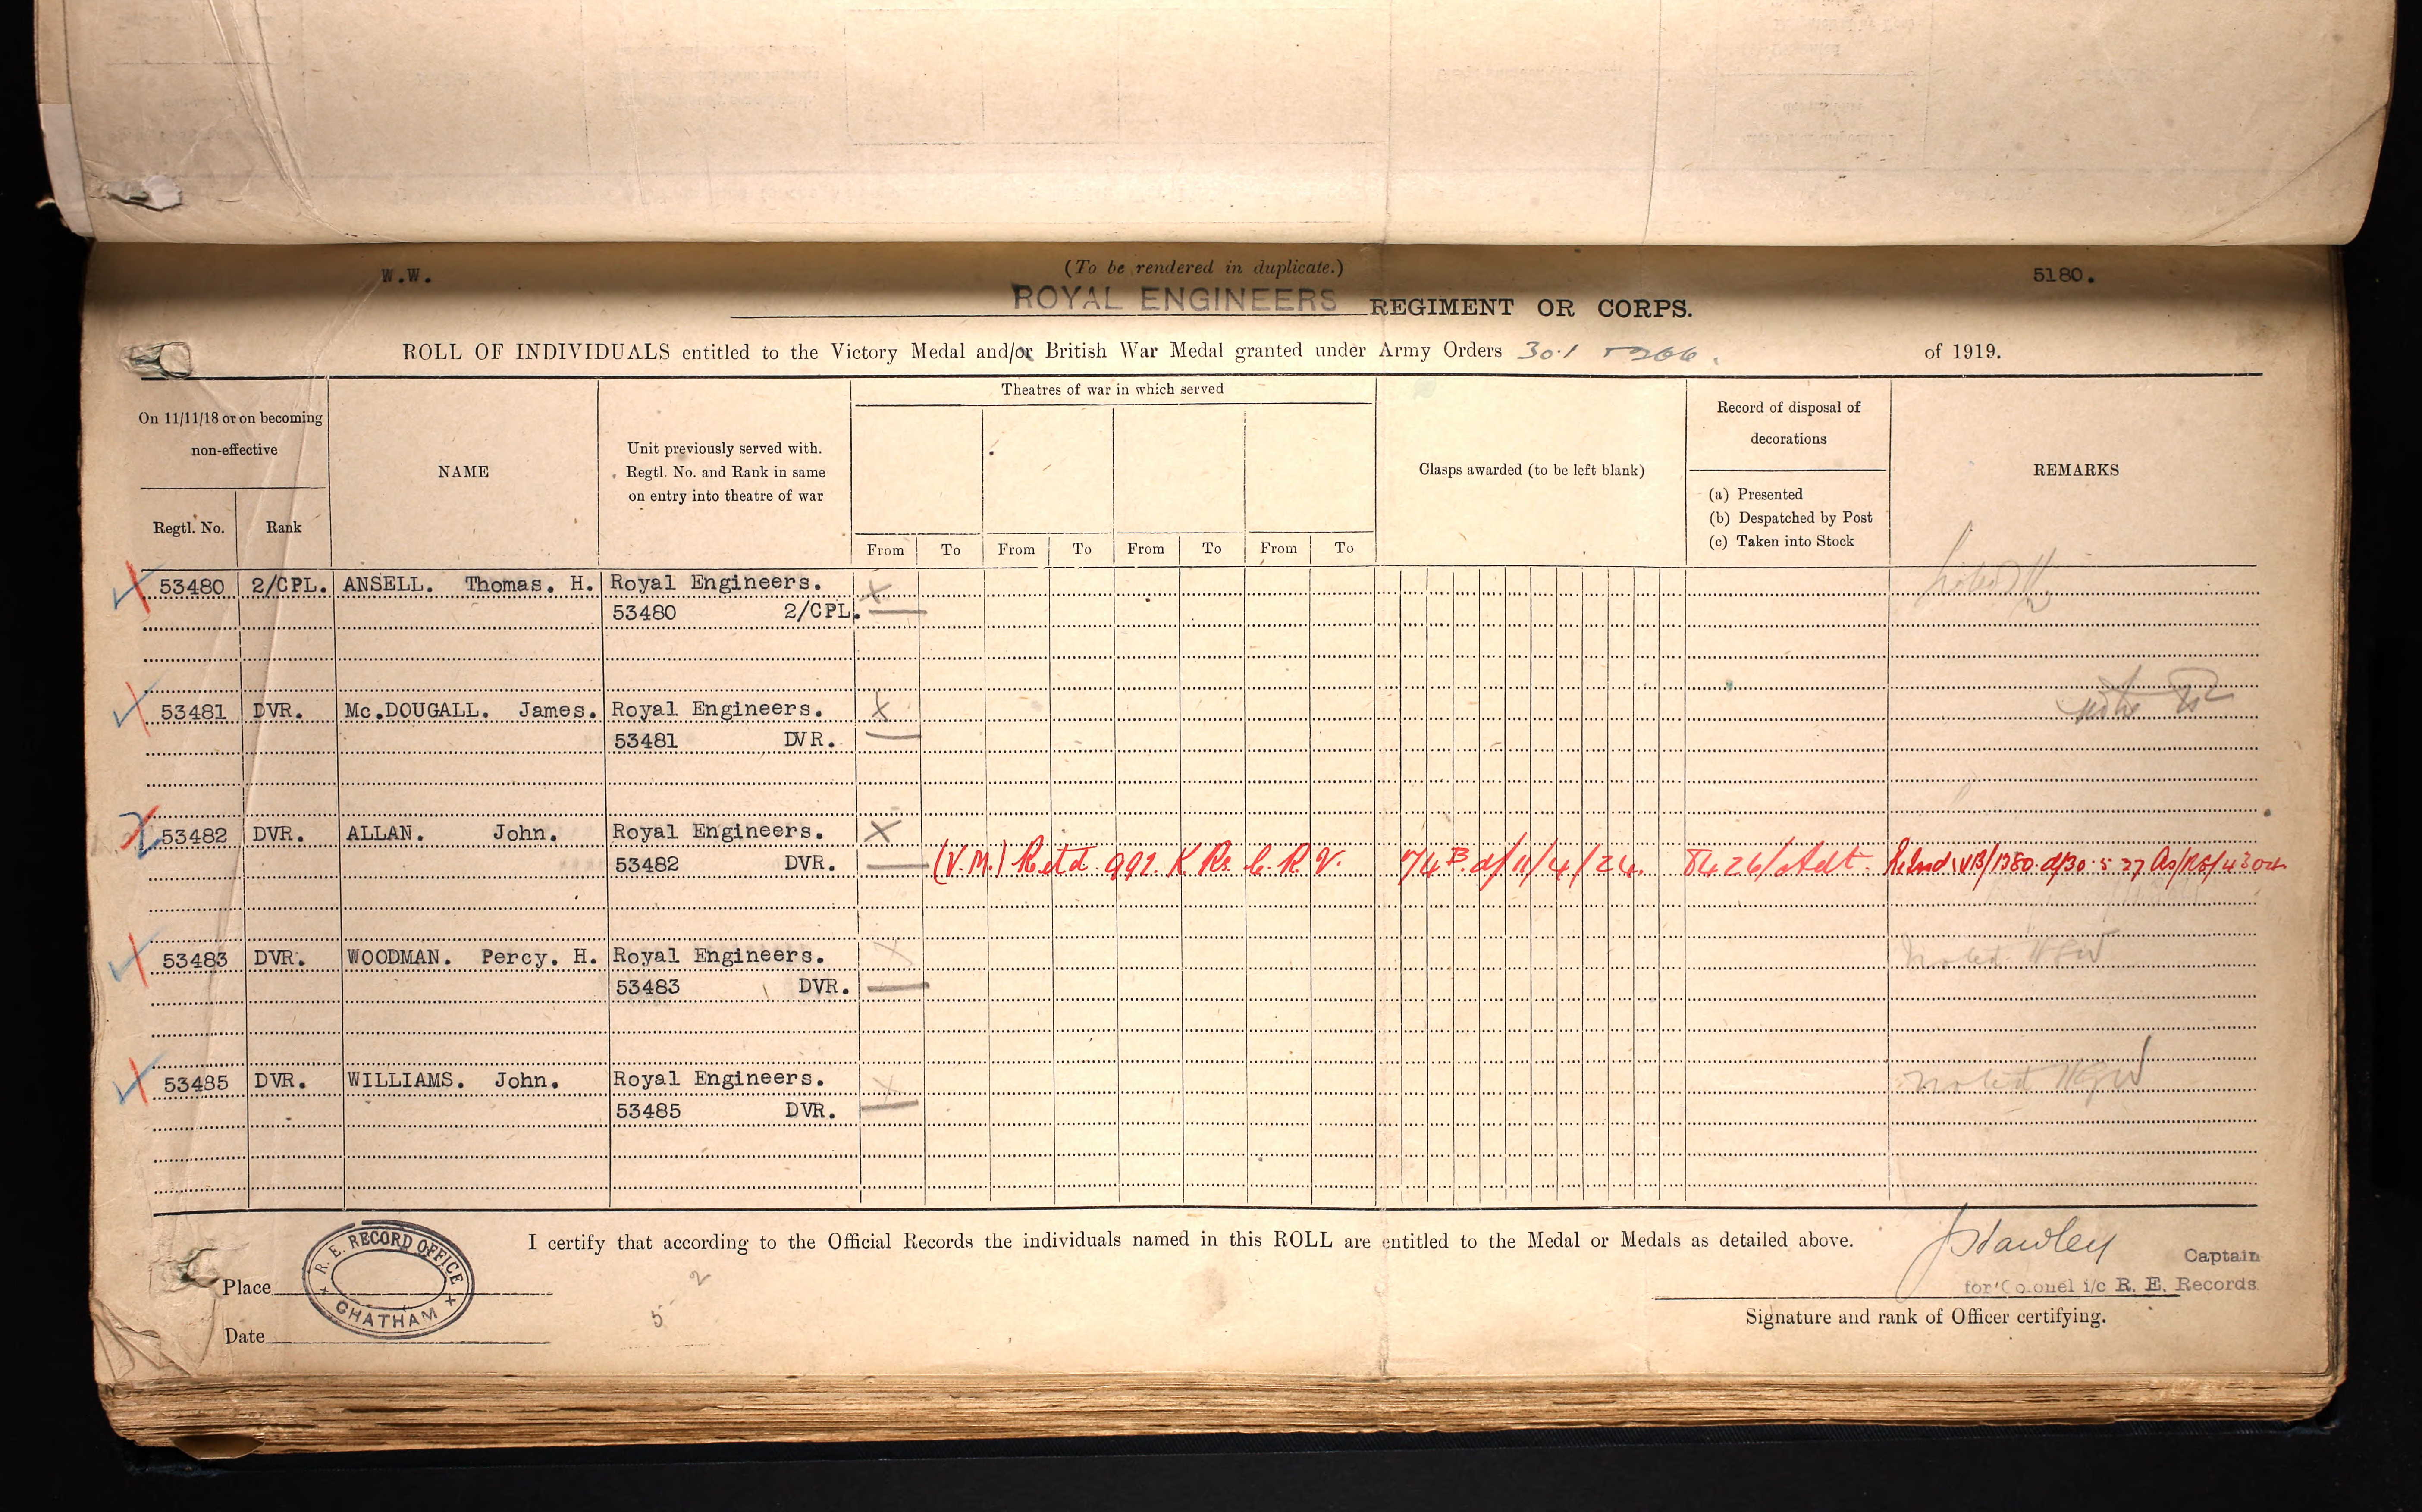 W.W.
(To be rendered in duplicate.)
5180.
ROYAL ENGINEERS REGIMENT OR CORPS.
ROLL OF INDIVIDUALS entitled to the Victory Medal and/or British War Medal granted under Army Orders 301 266. of 1919.
Theatres of war in which served
On 11/11/18 or on becoming
non-effective
NAME
Unit previously served with.
Regtl. No. and Rank in same
on entry into theatre of war
Clasps awarded (to be left blank)
Record of disposal of
decorations
(a) Presented
(b) Despatched by Post
(c) Taken into Stock
REMARKS
Regtl. No. Rank
From To From To From To From To
53480 2/CPL. ANSELL. Thomas. H. Royal Engineers. X
53480 2/CPL.
53481 DVR. Mc.DOUGALL. James. Royal Engineers. X
53481 DVR.
53482 DVR. ALLAN. John. Royal Engineers. X
53482 DVR. (V.M.) Retd. 992. K. Rs. 74B. d/11/4/24. 8426/Adt.
53483 DVR. WOODMAN. Percy. H. Royal Engineers. X Noted
53483 DVR.
53485 DVR. WILLIAMS. John. Royal Engineers. X Noted
53485 DVR.
I certify that according to the Official Records the individuals named in this ROLL are entitled to the Medal or Medals as detailed above.
Captain
for Colonel i/c R. E. Records
Signature and rank of Officer certifying.
Place
R. E. RECORD OFFICE
CHATHAM
Date
2
5